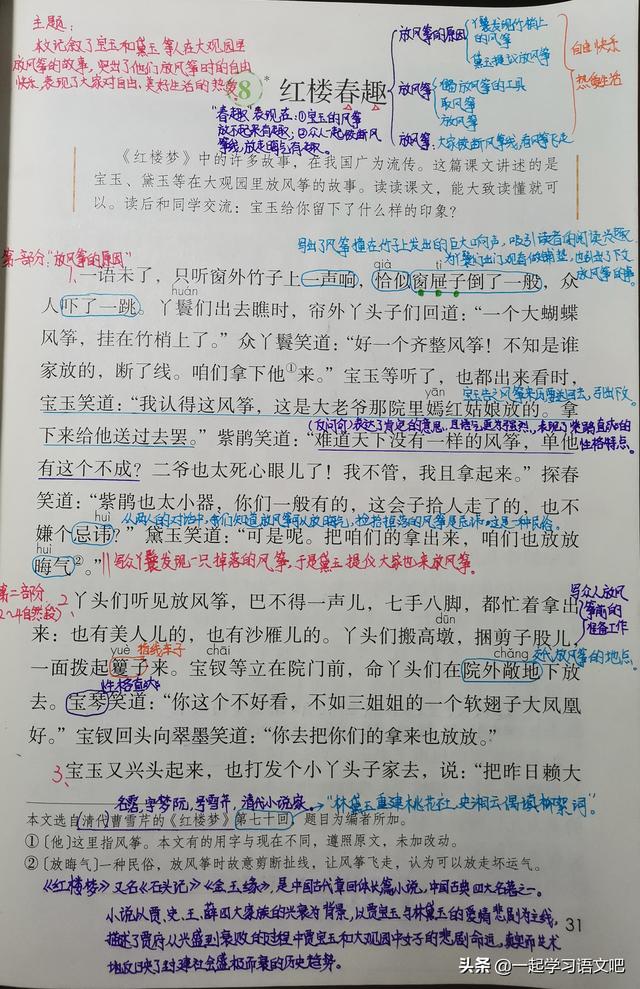 主题:
本文记叙了宝玉和黛玉等人在大观园里
放风筝的故事,突出了他们放风筝时的自由
快乐,表现了大家对自由、美好生活的热爱
放风筝的原因
丫鬟发现竹梢上
的风筝
黛玉提议放风筝
放风筝
准备放风筝的工具
取风筝
放风筝
放风筝:大家铰断风筝线,看风筝飞走
自由快乐
热爱生活
8* 红楼春趣
“春趣”表现在:①宝玉的风筝
放不起来有趣;②众人一起铰断风
筝线,放走晦气有趣。
《红楼梦》中的许多故事,在我国广为流传。这篇课文讲述的是
宝玉、黛玉等在大观园里放风筝的故事。读读课文,能大致读懂就可
以。读后和同学交流:宝玉给你留下了什么样的印象?
写出了风筝撞在竹子上发出的巨大响声,吸引读者的阅读兴趣
为丫鬟们出门观看做铺垫,也引出了下文
放风筝的事。
第一部分:“放风筝的原因”
qià tì
1、一语未了,只听窗外竹子上一声响,恰似窗屉子倒了一般,众
huán
人吓了一跳。丫鬟们出去瞧时,帘外丫头子们回道:“一个大蝴蝶
风筝,挂在竹梢上了。”众丫鬟笑道:“好一个齐整风筝!不知是谁
家放的,断了线。咱们拿下他①来。”宝玉等听了,也都出来看时,
yān
宝玉笑道:“我认得这风筝,这是大老爷那院里嫣红姑娘放的。拿
(反问句)表达了肯定的意思,且语气更为强烈,表现了紫鹃直爽的
性格特点。
下来给他送过去罢。”紫鹃笑道:“难道天下没有一样的风筝,单他
有这个不成?二爷也太死心眼儿了!我不管,我且拿起来。”探春
笑道:“紫鹃也太小器,你们一般有的,这会子拾人走了的,也不
huì
嫌个忌讳?”黛玉笑道:“可是呢。把咱们的拿出来,咱们也放放
huì
晦气②。”
写众丫鬟发现一只掉落的风筝,于是黛玉提议大家也来放风筝。
第二部分
(2~4自然段)
写众人放风
筝前的
准备工作
2、丫头们听见放风筝,巴不得一声儿,七手八脚,都忙着拿出
dūn
来:也有美人儿的,也有沙雁儿的。丫头们搬高墩,捆剪子股儿,
yuè 指线车子 chāi chǎng 交代放风筝的地点。
一面拨起籰子来。宝钗等立在院门前,命丫头们在院外敞地下放
性格直爽
去。宝琴笑道:“你这个不好看,不如三姐姐的一个软翅子大凤凰
好。”宝钗回头向翠墨笑道:“你去把你们的拿来也放放。”
3、宝玉又兴头起来,也打发个小丫头子家去,说:“把昨日赖大
名霑,字梦阮,号雪芹,清代小说家。
“林黛玉重建桃花社,史湘云偶填柳絮词”。
本文选自清代曹雪芹的《红楼梦》第七十回,题目为编者所加。
①〔他〕这里指风筝。本文有的用字与现在不同,遵照原文,未加改动。
②〔放晦气〕一种民俗,放风筝时故意剪断扯线,让风筝飞走,认为可以放走坏运气。
《红楼梦》又名《石头记》《金玉缘》,是中国古代章回体长篇小说,中国古典四大名著之一。
小说以贾、史、王、薛四大家族的兴衰为背景,以贾宝玉与林黛玉的爱情悲剧为主线,
描述了贾府从兴盛到衰败的过程中贾宝玉和大观园中女子的悲剧命运,真实而艺术
地反映了封建社会盛极而衰的历史趋势。
31
头条 @一起学习语文吧